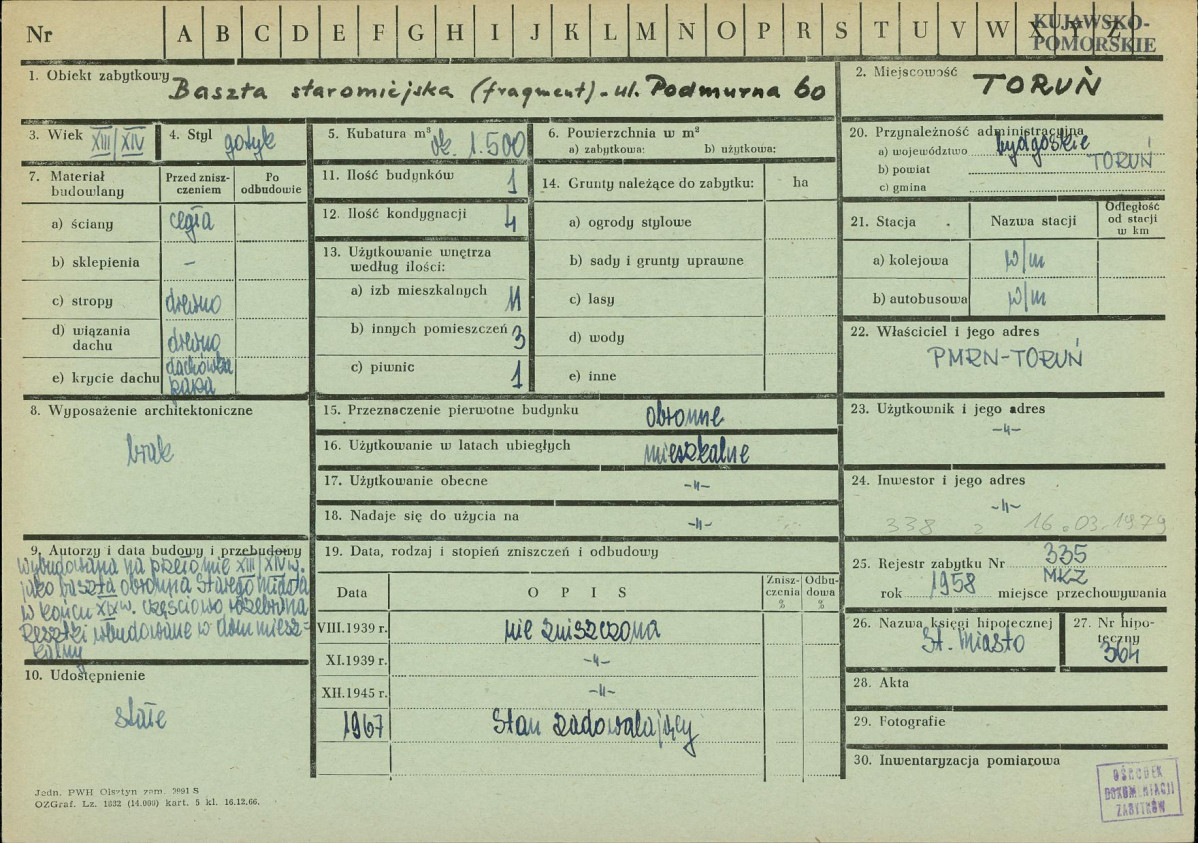 Nr A B C D E F G H I J K L M N O P R S T U V W X Y Z
KUJAWSKO-
POMORSKIE
1. Obiekt zabytkowy Baszta staromiejska (fragment) - ul. Podmurna 60
2. Miejscowość
TORUŃ
3. Wiek XIII/XIV
4. Styl gotyk
5. Kubatura m³
ok. 1.500
6. Powierzchnia w m²
a) zabytkowa: b) użytkowa:
20. Przynależność administracyjna
a) województwo bydgoskie
b) powiat TORUŃ
c) gmina
7. Materiał
budowlany
Przed znisz-
czeniem
Po
odbudowie
a) ściany cegła
b) sklepienia –
c) stropy drewno
d) wiązania
dachu drewno
e) krycie dachu dachówka
papa
11. Ilość budynków 1
12. Ilość kondygnacji 4
13. Użytkowanie wnętrza
według ilości:
a) izb mieszkalnych 11
b) innych pomieszczeń 3
c) piwnic 1
14. Grunty należące do zabytku: ha
a) ogrody stylowe
b) sady i grunty uprawne
c) lasy
d) wody
e) inne
21. Stacja
Nazwa stacji
Odległość
od stacji
w km
a) kolejowa w/m
b) autobusowa w/m
22. Właściciel i jego adres
PMRN-TORUŃ
8. Wyposażenie architektoniczne
brak
15. Przeznaczenie pierwotne budynku obronne
16. Użytkowanie w latach ubiegłych mieszkalne
17. Użytkowanie obecne -"-
18. Nadaje się do użycia na -"-
23. Użytkownik i jego adres
-"-
24. Inwestor i jego adres
-"-
338 2 16.03.1979
9. Autorzy i data budowy i przebudowy
Wybudowana na przełomie XIII/XIV w.
jako baszta obronna Starego Miasta
w końcu XIX w. częściowo rozebrana
Resztki wbudowane w dom miesz-
kalny
10. Udostępnienie
stałe
19. Data, rodzaj i stopień zniszczeń i odbudowy
Data
OPIS
Znisz-
czenia
%
Odbu-
dowa
%
VIII.1939 r. nie zniszczona
XI.1939 r. -"-
XII.1945 r. -"-
1967 Stan zadowalający
25. Rejestr zabytku Nr 335
rok 1958 MKZ miejsce przechowywania
26. Nazwa księgi hipotecznej
St. Miasto
27. Nr hipo-
teczny
364
28. Akta
29. Fotografie
30. Inwentaryzacja pomiarowa
OŚRODEK
DOKUMENTACJI
ZABYTKÓW
Jedn. PWH Olsztyn zam. 2991 S
OZGraf. Lz. 1832 (14.000) kart. 5 kl. 16.12.66.